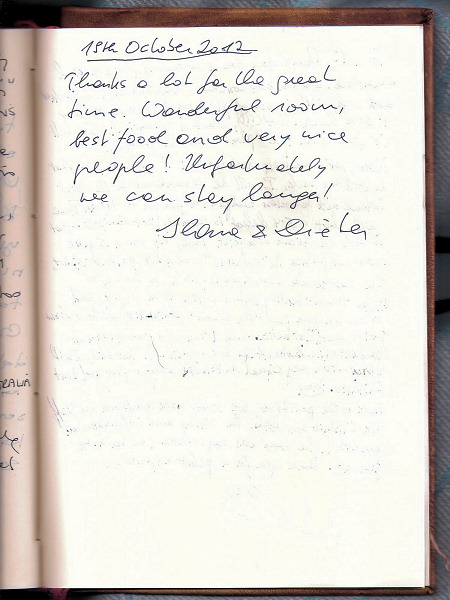 18th October 2012
Thanks a lot for the great
time. Wonderful room,
best food and very nice
people! Unfortunately
we can stay longer!
& Dieter
RALIA